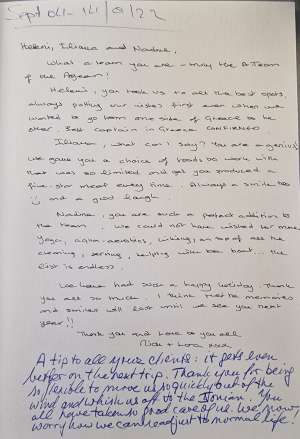 Sept 04 - 14/9/22
Heleni, Iliana and Nadine,
What a team you are - truly the A Team
of the Aegean!
Heleni, you took us to all the best spots,
always putting our wishes first even when we
wanted to go from one side of Greece to the
other. Best captain in Greece CONFIRMED.
Iliana, what can I say? You are a genius!
We gave you a choice of foods to work with
that was so limited and yet you produced a
five-star meal every time. Always a smile too
and a good laugh.
Nadine, you are such a perfect addition to
the team. We could not have wished for more
Yoga, aqua-aerobics, hiking, on top of all the
cleaning, serving, helping with the boat... the
list is endless.
We have had such a happy holiday. Thank
you all so much. I think that the memories
and smiles will last until we see you next
year!!
Thank you and love to you all
A tip to all your clients: it gets even
better on the next trip. Thank you for being
so flexible to move us so quickly out of the
wind and whisk us off to the Ionian. You
all have taken so good care of us. We now
worry how we can readjust to normal life!